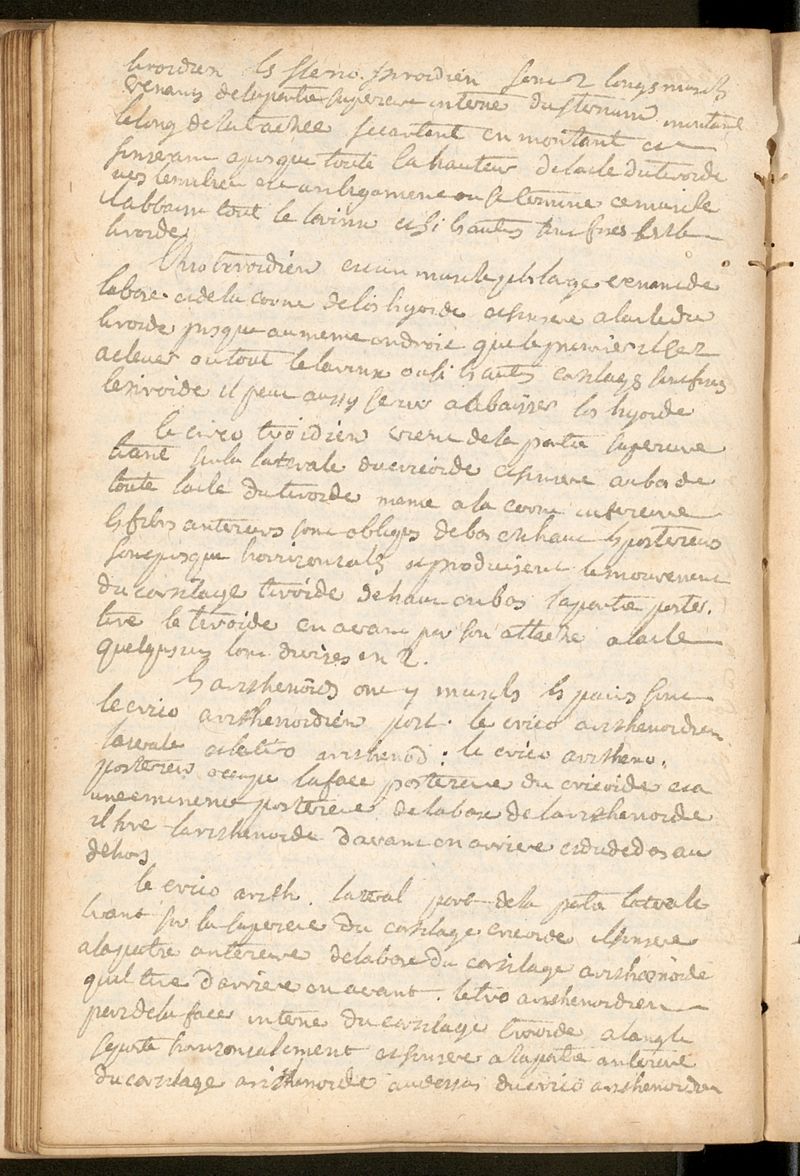 tiroidien les sterno tiroidien sont 2 longs muscls
venants de la partie superieure interne du sternum montant
le long de la trachée secartent en montant et
sinserant a presque toute la hauteur de laile du tiroide
vers le milieu est un ligament ou se termine ce muscle
il abbaisse tout le larinx et si hautes
tiroide
tirroidien est un muscle plus large venant de
la base et de la corne de los hyoide et sinsere a laile du
tiroide jusque au meme endroit que le premier
a elever ou tout le larinx ou si hautes cartilage
le tiroide il peut aussy servir a abbaisser los hyoide
le crico tiroidien vient de la partie superieure
et sinsere au bas de
toute laile du tiroide meme a la corne inferieure
ls fibres anterieurs sont obliges de bas en haut ls posterieurs
sont presque horrizontals et produisent le mouvement
du cartilage tiroide de haut en bas la partie poster.
tire le tiroide en avant par son attache a laile
quelques uns sont divises en 2.
ls arithenoids ont muscls ls pairs sont
le crico arithenoidien post. le crico arithenoidien
laterale et le tiro arithenod : le crico aritheno.
posterieur occupe la face posterieure du cricoide et a
une eminence posterieure de la base de larithenoide
il tire larithenoide davant en arriere et du dedans au
dehors
le crico arith. lateral part de la partie laterale
superieure du cartilage cricoide il sinsere
a la partie anterieure de la base du cartilage arithenoide
quil tire darriere en avant. le tiro arithenoidien
part de la face interne du cartilage tiroide a langle
se porte horizontalement et sinsere a la partie anterieure
du cartilage arithenoide au dessus du crico arithenoidien